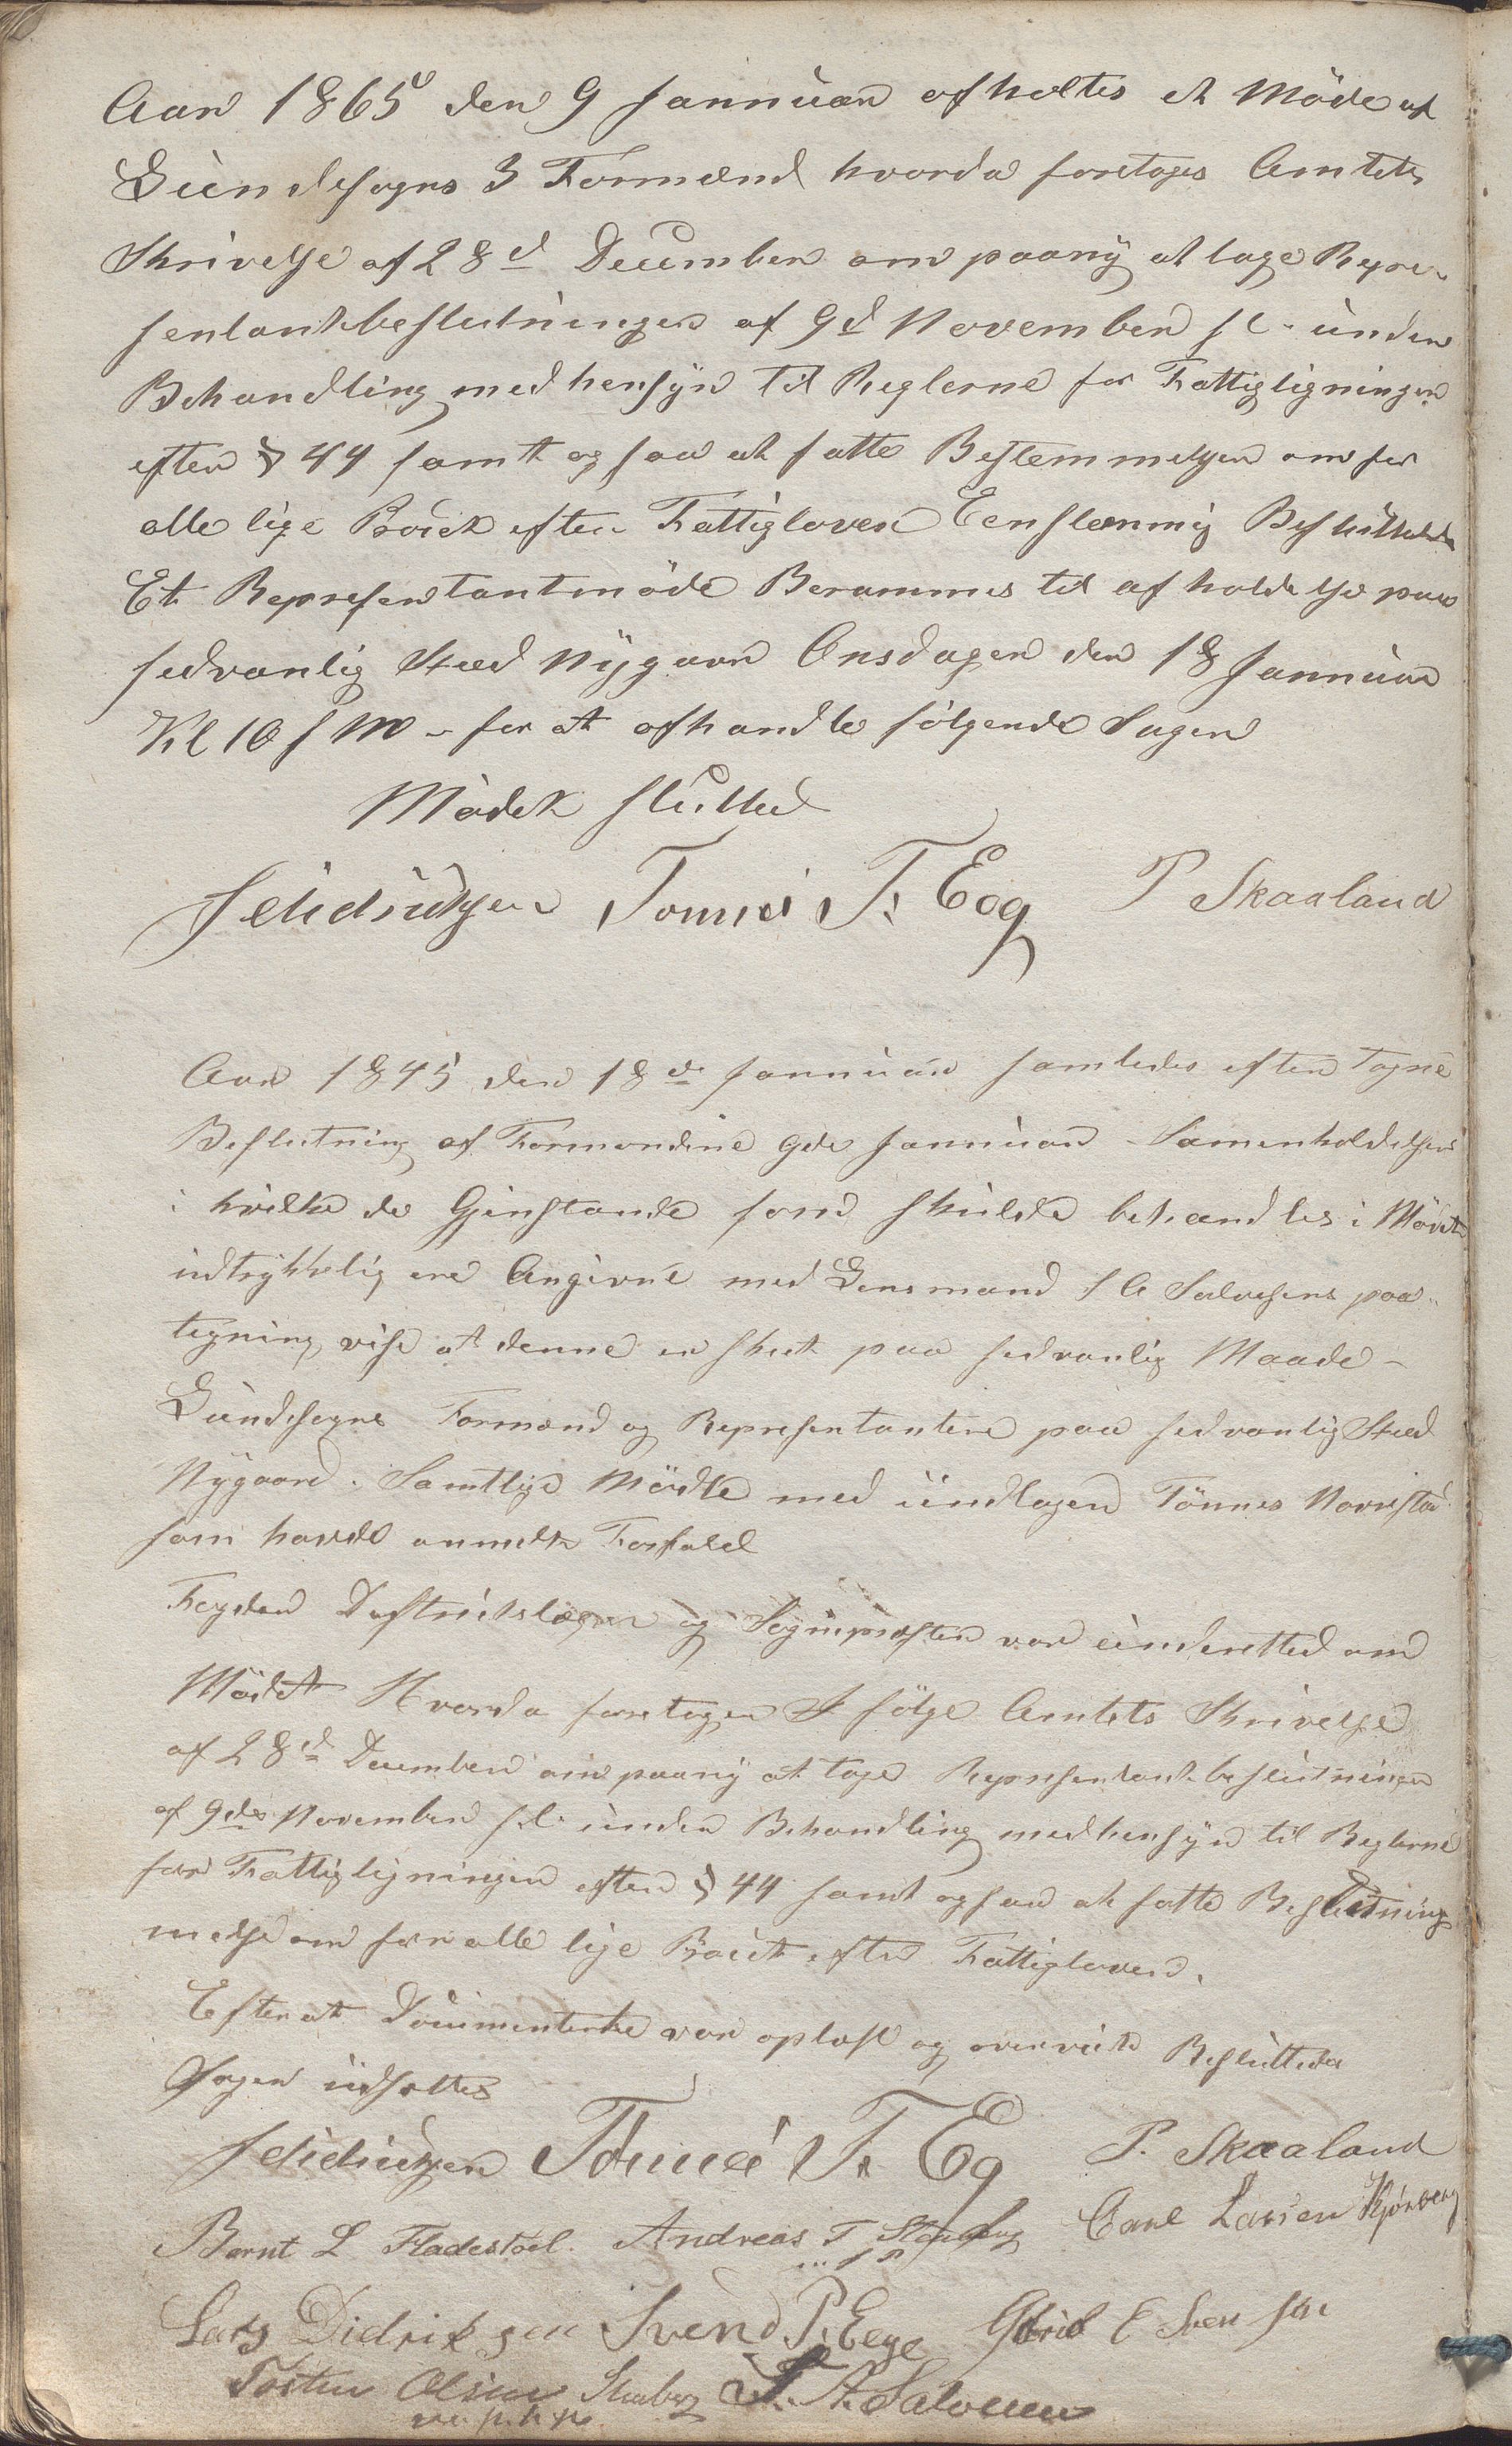 Aar 1865 den 9 Januar afholtes et Möde af
Lundesogns 3 Formænd hvorda foretoges Amtets
Skrivelse af 28d December om paany at tage Repre-
sentantbeslutningen af 9d November f. under
Behandling med hensyn til Reglerne for Fattigligningen
efter § 44 samt ogsaa at fatte Bestemmelsen om for
alle lige efter Fattigloven Eenstemmig Besluttede
Et Representantmöde Berammes til afholdelse paa
sedvanlig Stæd Nygaard Onsdagen den 18 Januar
Kl 10 f M - for at afhandle følgende Sager
Mödet slutted
Tönnes T. Eeg P Skaaland
Aar 1845 den 18de Januar samledes efter Tagne
Beslutning af Formændene 9de Januar Samenholdelsen
i hvilke de Gjenstande som skulde behandles i Mödet
udtrykkelig ere Angivne med Lensmand Salvesens paa-
tegning vise at denne er skeet paa sedvanlig Maade -
Lundesogns Formænd og Representantere paa sedvanlig Stæd
Nygaard. Samtlige Mödte med undtagen Tönnes Norrestad
som havde anmelt Forfald
Fogden Distriktslægen og Sognepresten var underetted om
Mödet Hvorda foretoges I følge Amtets Skrivelse
af 28d December om paany at tage Representantbeslutningen
af 9de November f. under Behandling med hensyn til Reglerne
for Fattigligningen efter § 44 samt ogsaa at fatte Beslutning
melse om for alle lige efter Fattigloven.
Efter at Documenterne var oplæst og overveiet Besluttedes
Sagen udsættes
Tönnes T. Eeg P. Skaaland
Bernt L Fladestöel. Andreas T Carl Larsen Kjörberg
Lars Didriksen Svend P. Eege E Svensen
Tosten Olsen A. Salvesen